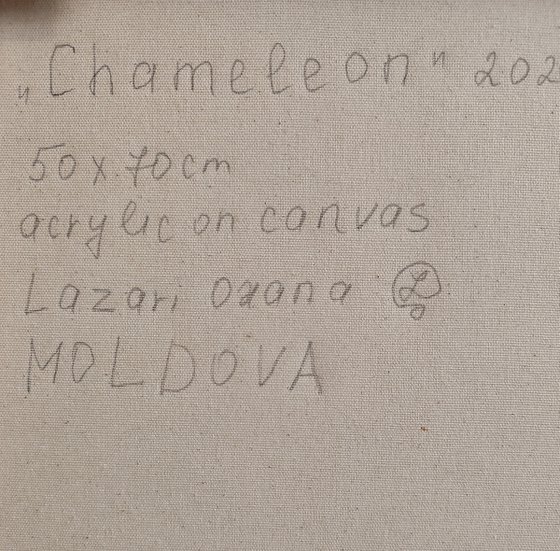 „Chameleon" 202
50x70cm
acrylic on canvas
Lazari Oxana
MOLDOVA